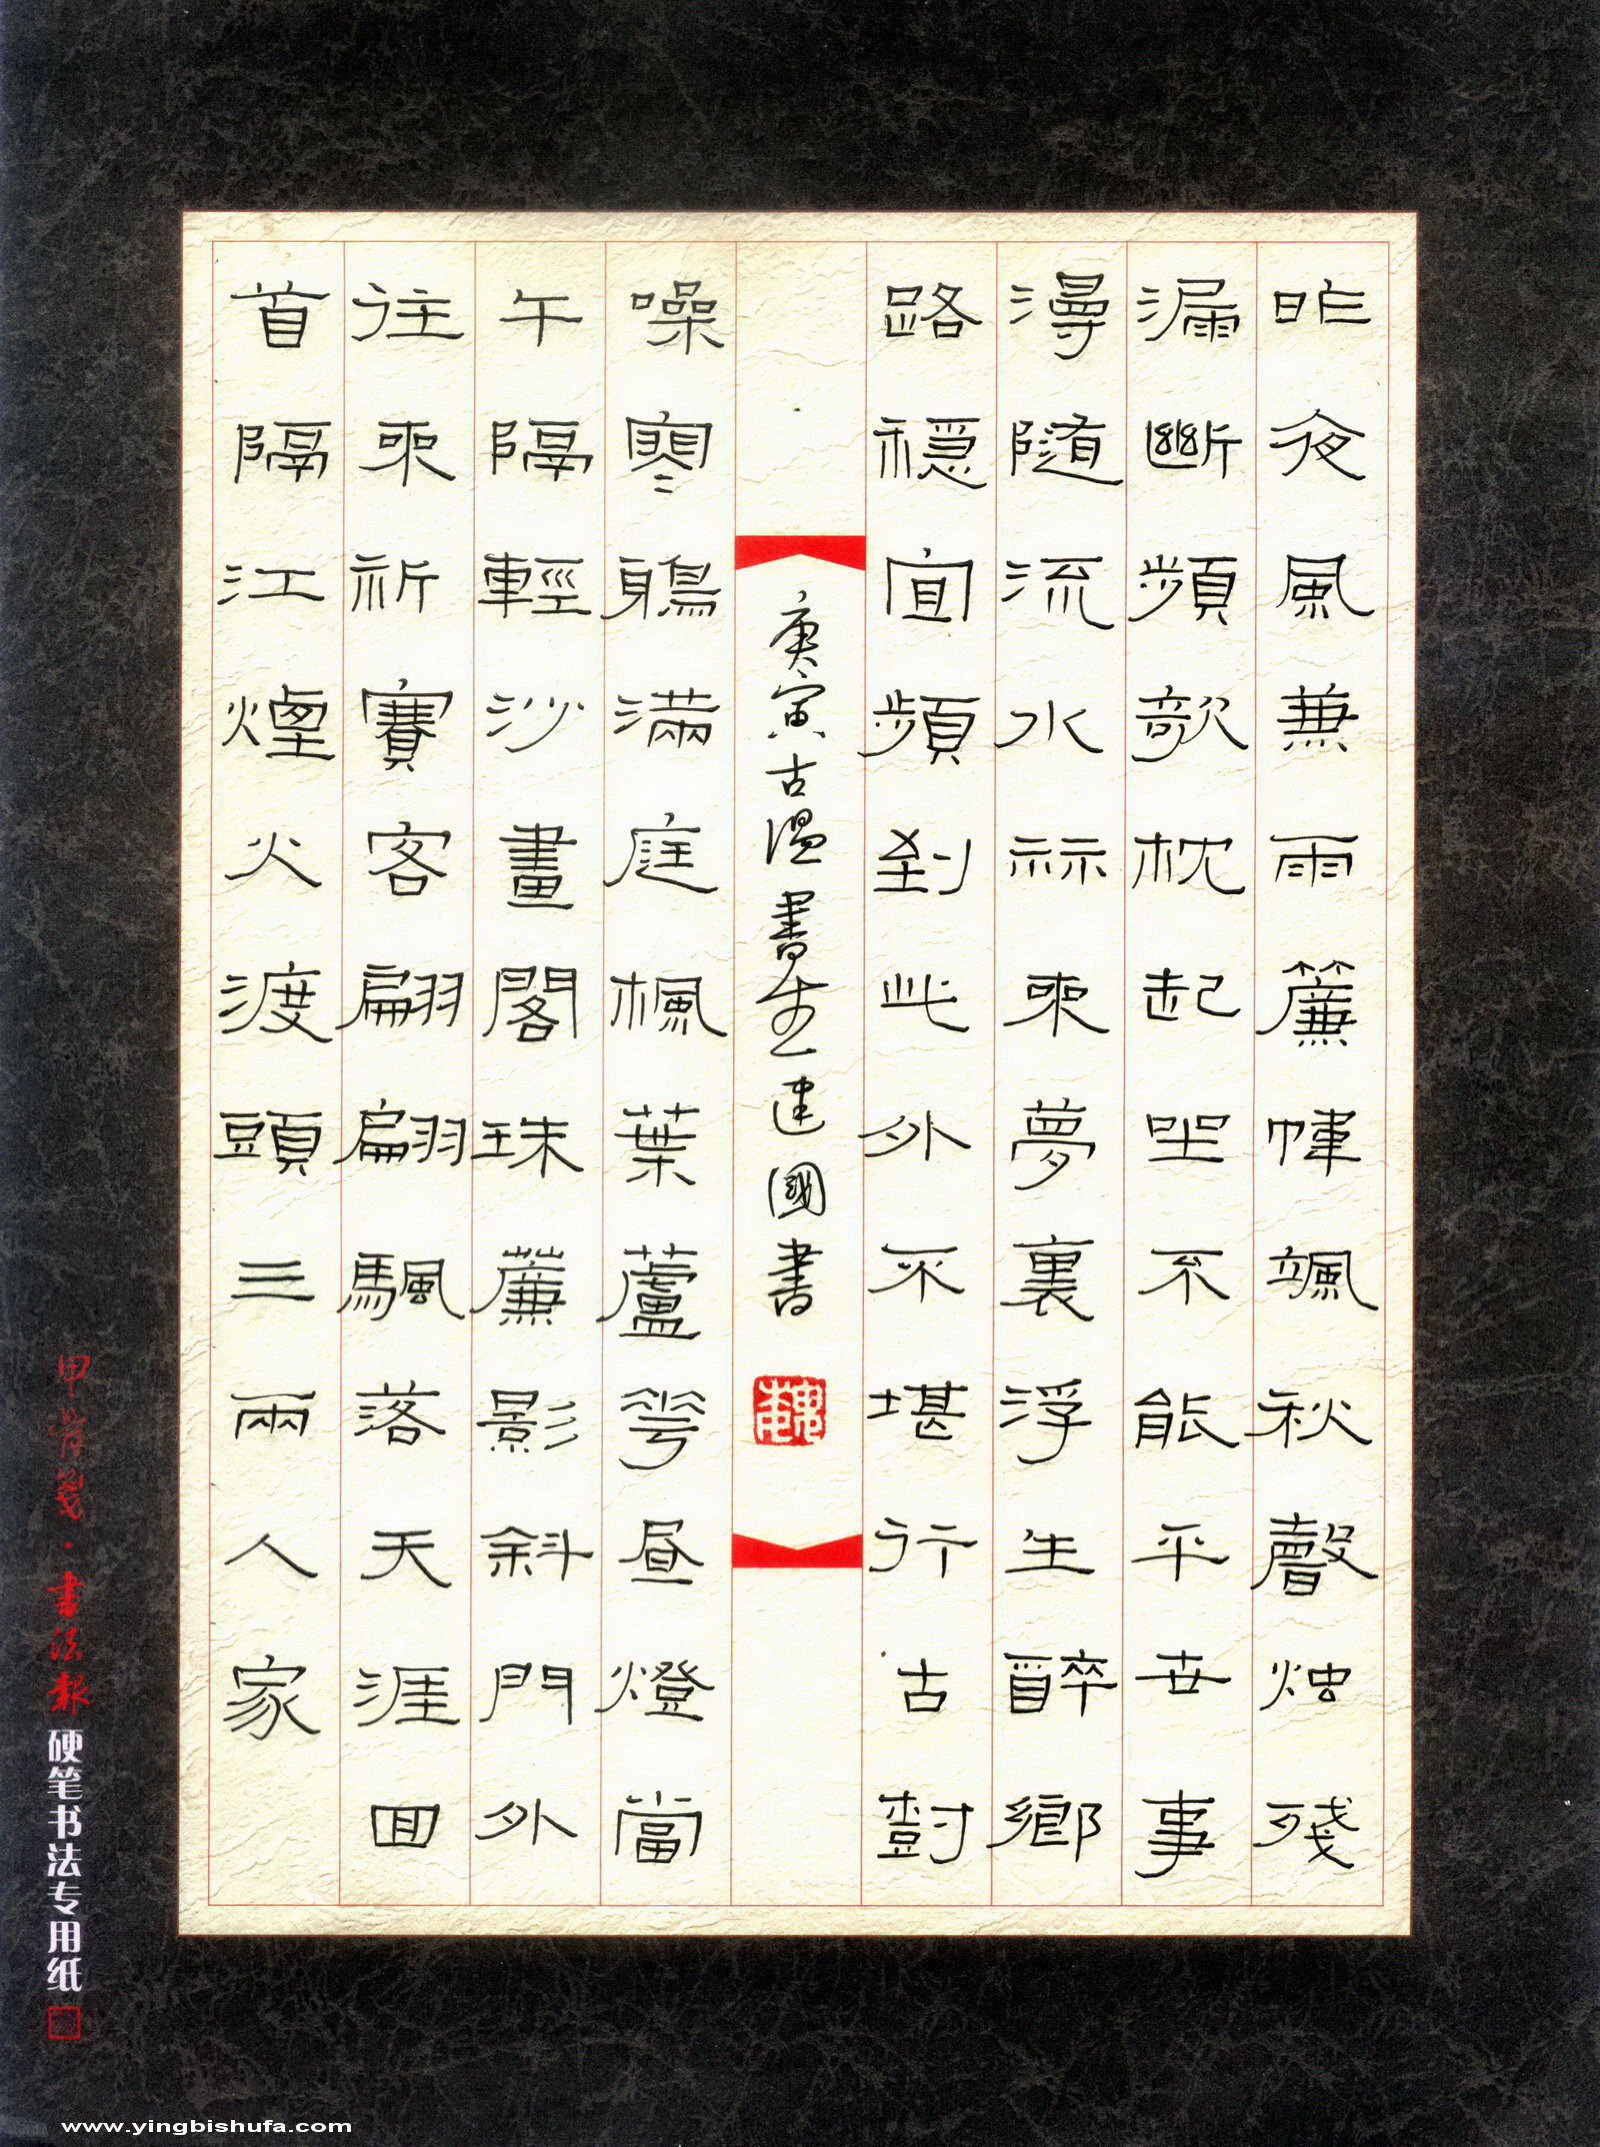 昨夜風兼雨簾幃颯秋聲烛殘
漏斷頻欹枕起坐不能平世事
漫隨流水祘來夢裏浮生醉鄉
路穩宜頻到此外不堪行古樹
庚寅古溫書生建國書
噪寒鴉滿庭楓葉蘆花昼燈當
午隔輕沙畫閣珠簾影斜門外
往來祈賽客翩翩颿落天涯回
首隔江煙火渡頭三兩人家
甲骨笺·書法報硬笔书法专用纸
www.yingbishufa.com